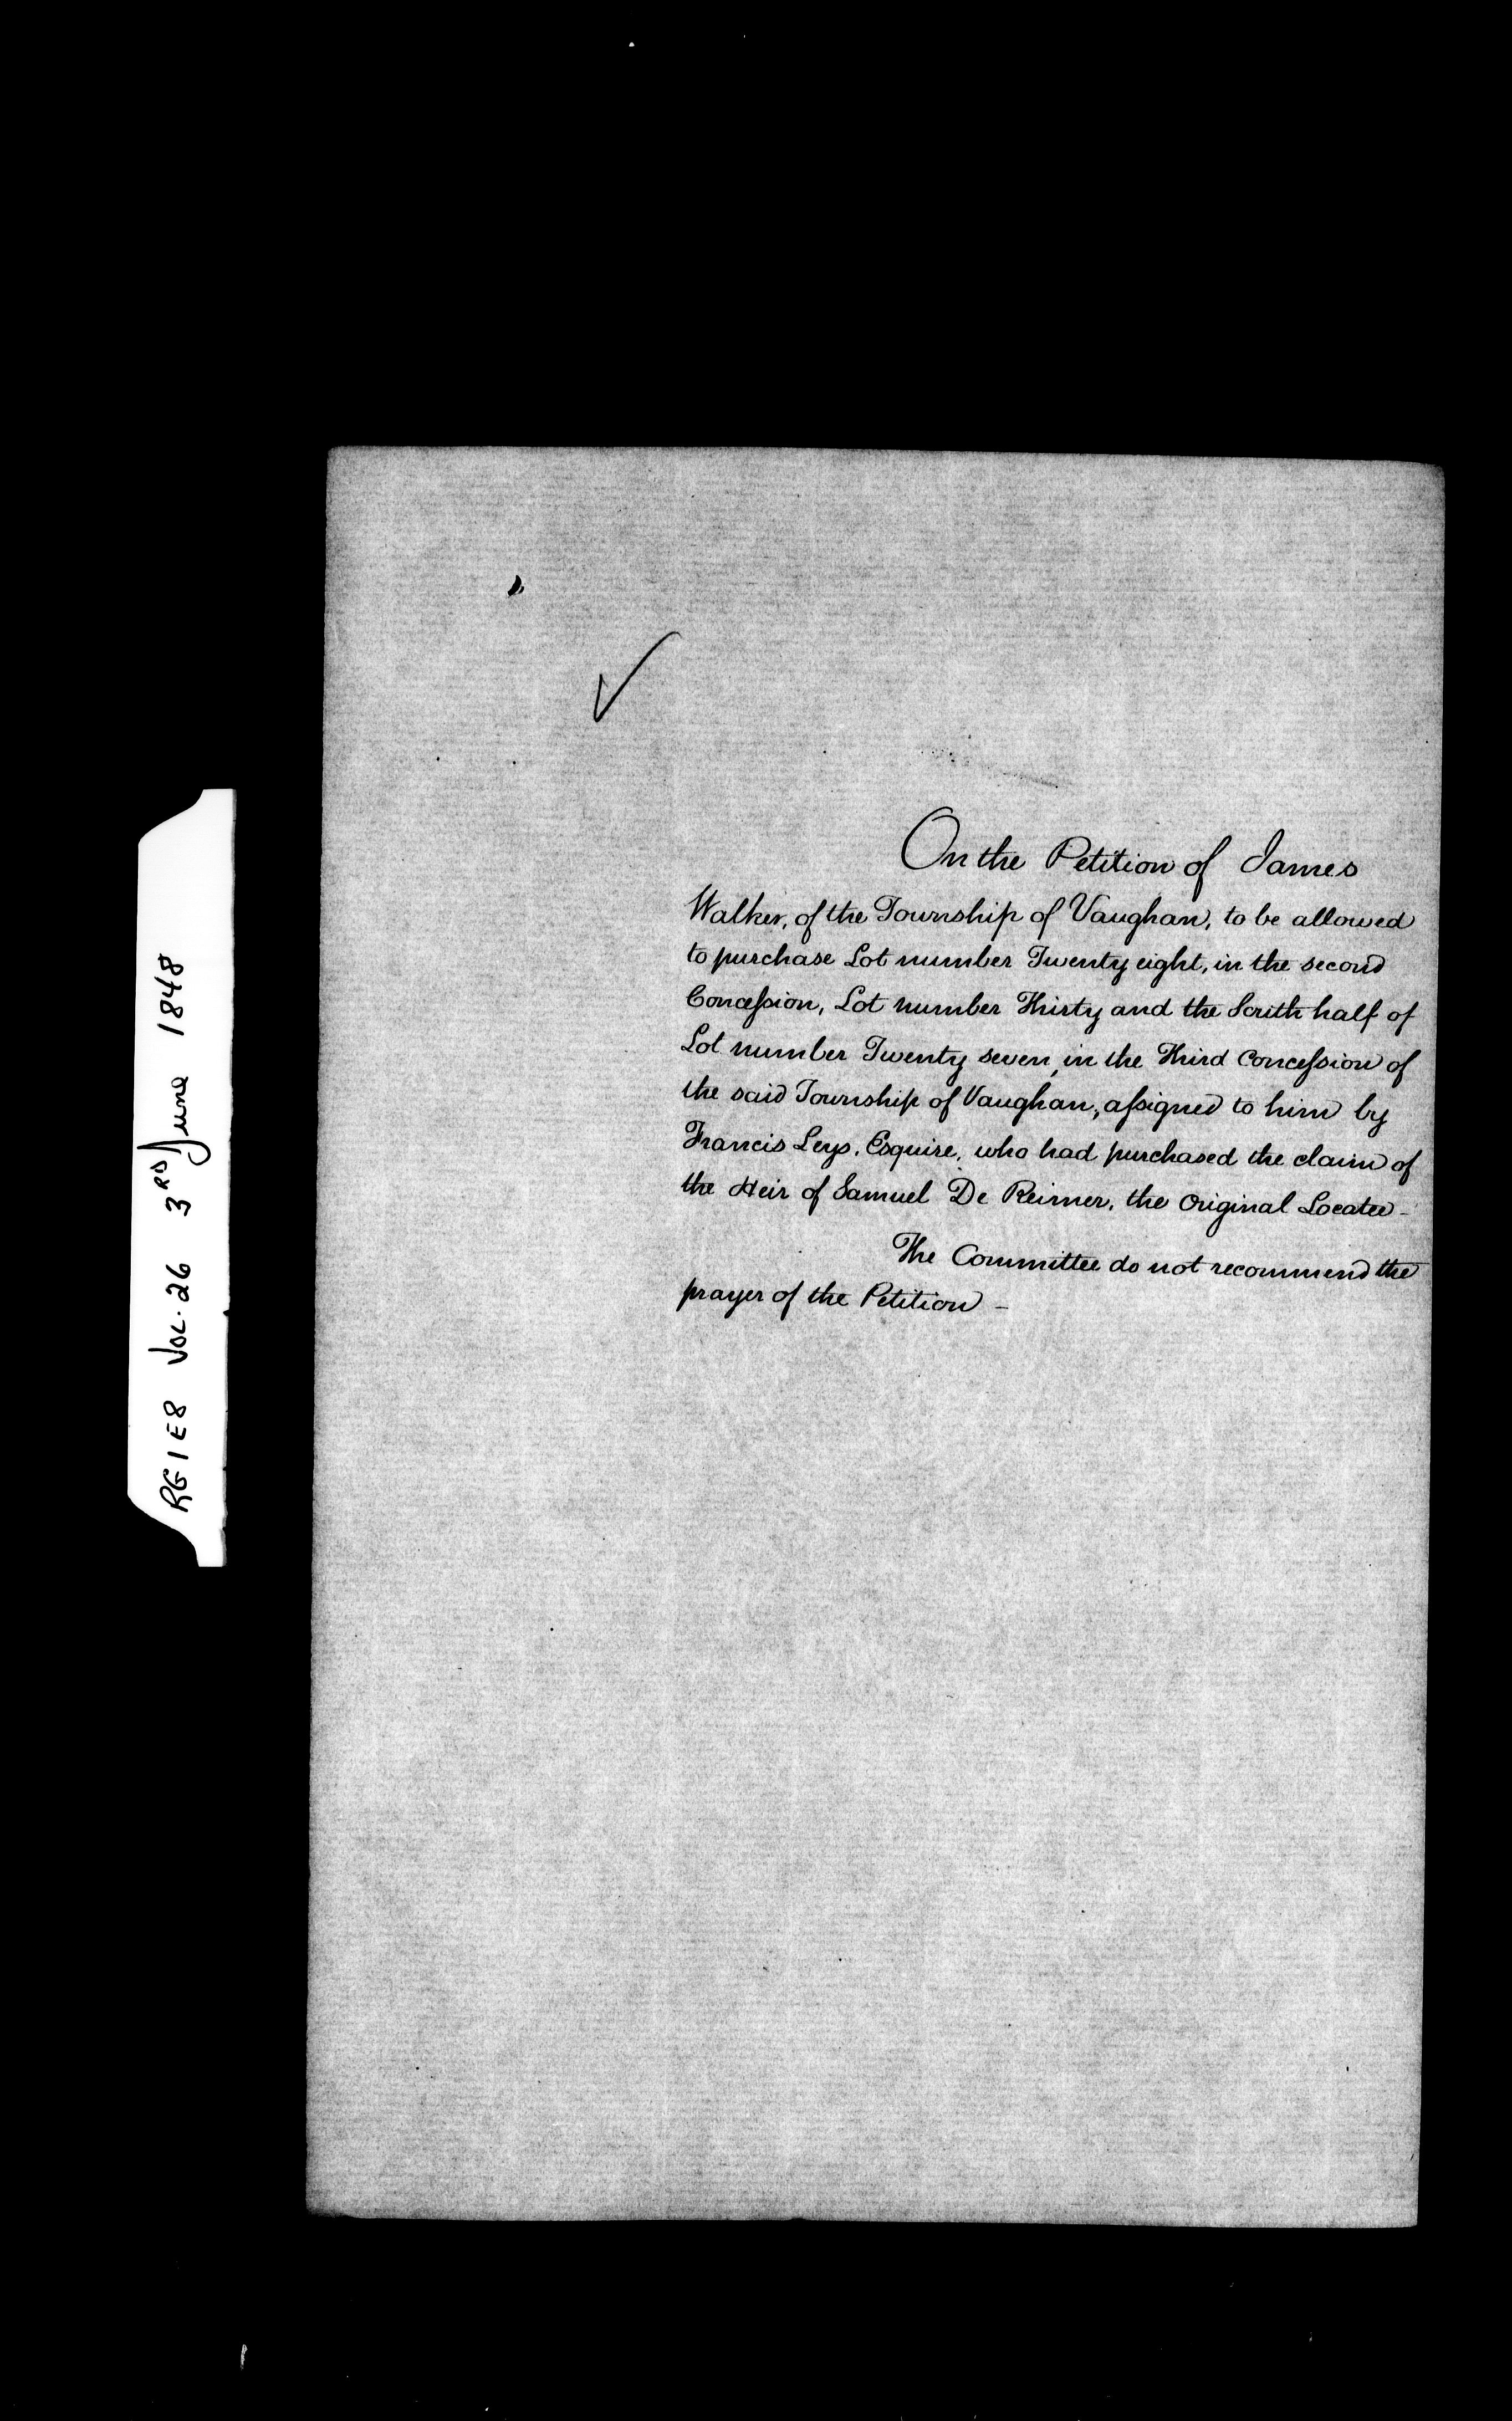 RG1E8 VOL. 26 3RD June 1848
On the Petition of James
Walker, of the Township of Vaughan, to be allowed
to purchase Lot number Twenty eight, in the second
Concession, Lot number Thirty and the South half of
Lot number Twenty seven, in the Third Concession of
the said Township of Vaughan, assigned to him by
Francis Leys, Esquire, who had purchased the claim of
the Heir of Samuel De Reimer, the Original Locatee -
The Committee do not recommend the
prayer of the Petition -